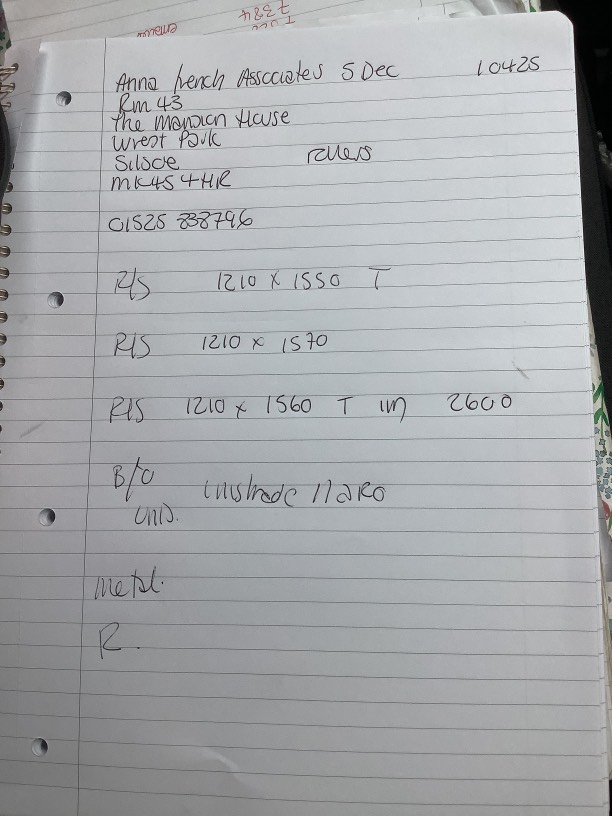 Anna French Associates 5 Dec 10425
Rm 43
The Mansion House
Wrest Park
Silsoe rollers
MK45 4HR
01525 838796
R/S 1210 x 1550 T
R/S 1210 x 1570
R/S 1210 x 1560 T in 2600
B/O
Uni.
metal.
R.
7384